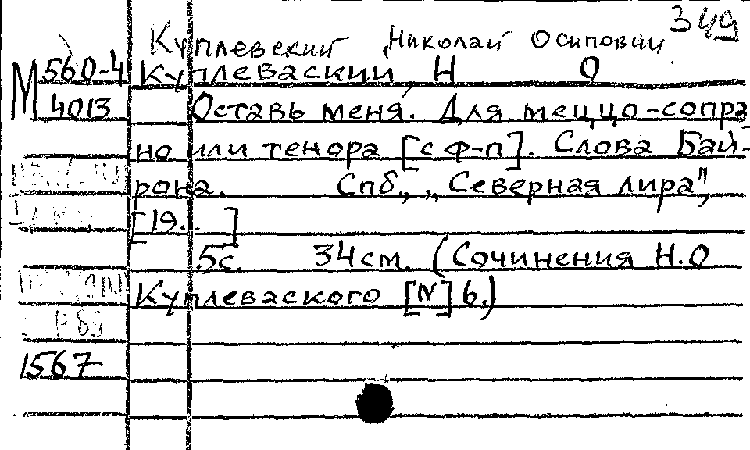 349
Куплевский Николай Осипович
М 560-4 Куплеваский, Н О
4013 Оставь меня. Для меццо-сопра
но или тенора [с ф-п]. Слова Бай-
рона. Спб, „Северная лира",
[19.. ]
5с. 34см. (Сочинения Н.О
Куплеваского [N] 6.)
1567